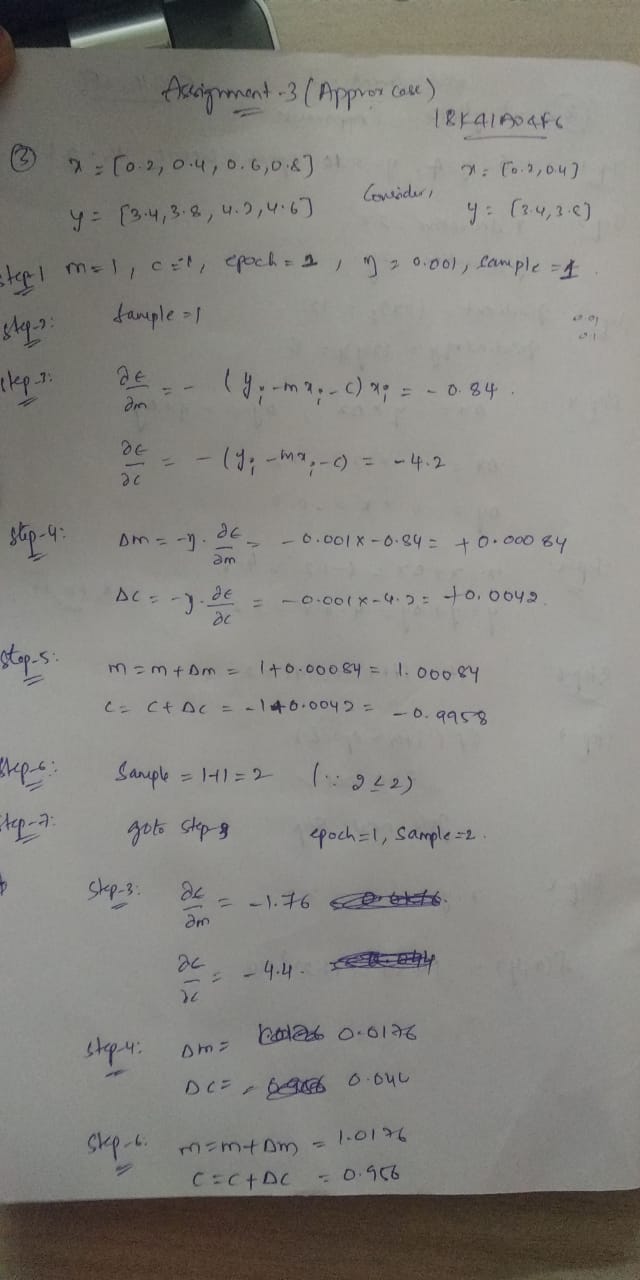 Assignment-3 (Approx case)
18K41A04F6
③ x = [0.2, 0.4, 0.6, 0.8]
x = [0.2, 0.4]
y = [3.4, 3.8, 4.2, 4.6]
Consider,
y = [3.4, 3.8]
step-1 m=1, c=-1, epoch = 1, η = 0.001, sample = 1.
step-2: Sample = 1
step-3: ∂ε/∂m = - (yi - mxi - c) xi = - 0.84.
∂ε/∂c = - (yi - mxi - c) = - 4.2
step-4: Δm = -η. ∂ε/∂m = - 0.001 x -0.84 = + 0.00084
Δc = -η. ∂ε/∂c = - 0.001 x -4.2 = +0.0042.
Step-5: m = m + Δm = 1+0.00084 = 1.00084
c = c + Δc = -1+0.0042 = -0.9958
Step-6: Sample = 1+1 = 2 (∵ 2 ≤ 2)
Step-7: goto step-3 epoch=1, Sample=2.
Step-3: ∂ε/∂m = -1.76
∂ε/∂c = -4.4.
step-4: Δm = 0.0176
Δc = 0.044
Step-6. m = m + Δm = 1.0176
c = c + Δc = 0.956